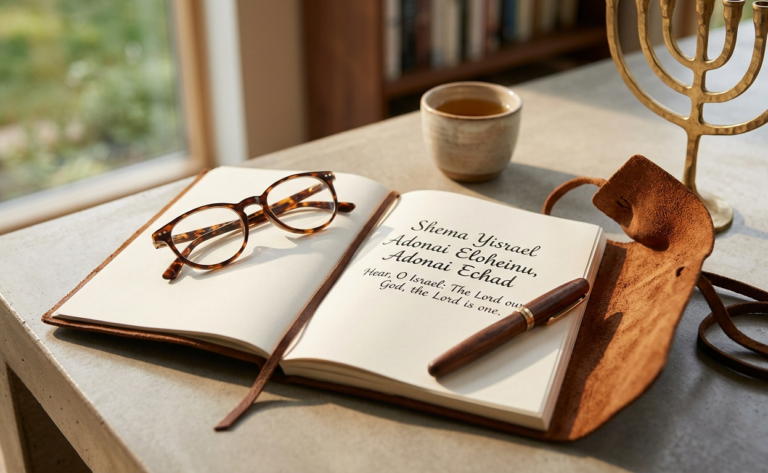 Shema Yisrael
Adonai Eloheinu,
Adonai Echad
Hear, O Israel: The Lord our
God, the Lord is one.